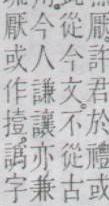 許君於禮或
從今文不從古
今人謙讓亦兼
厭或作撎譌字